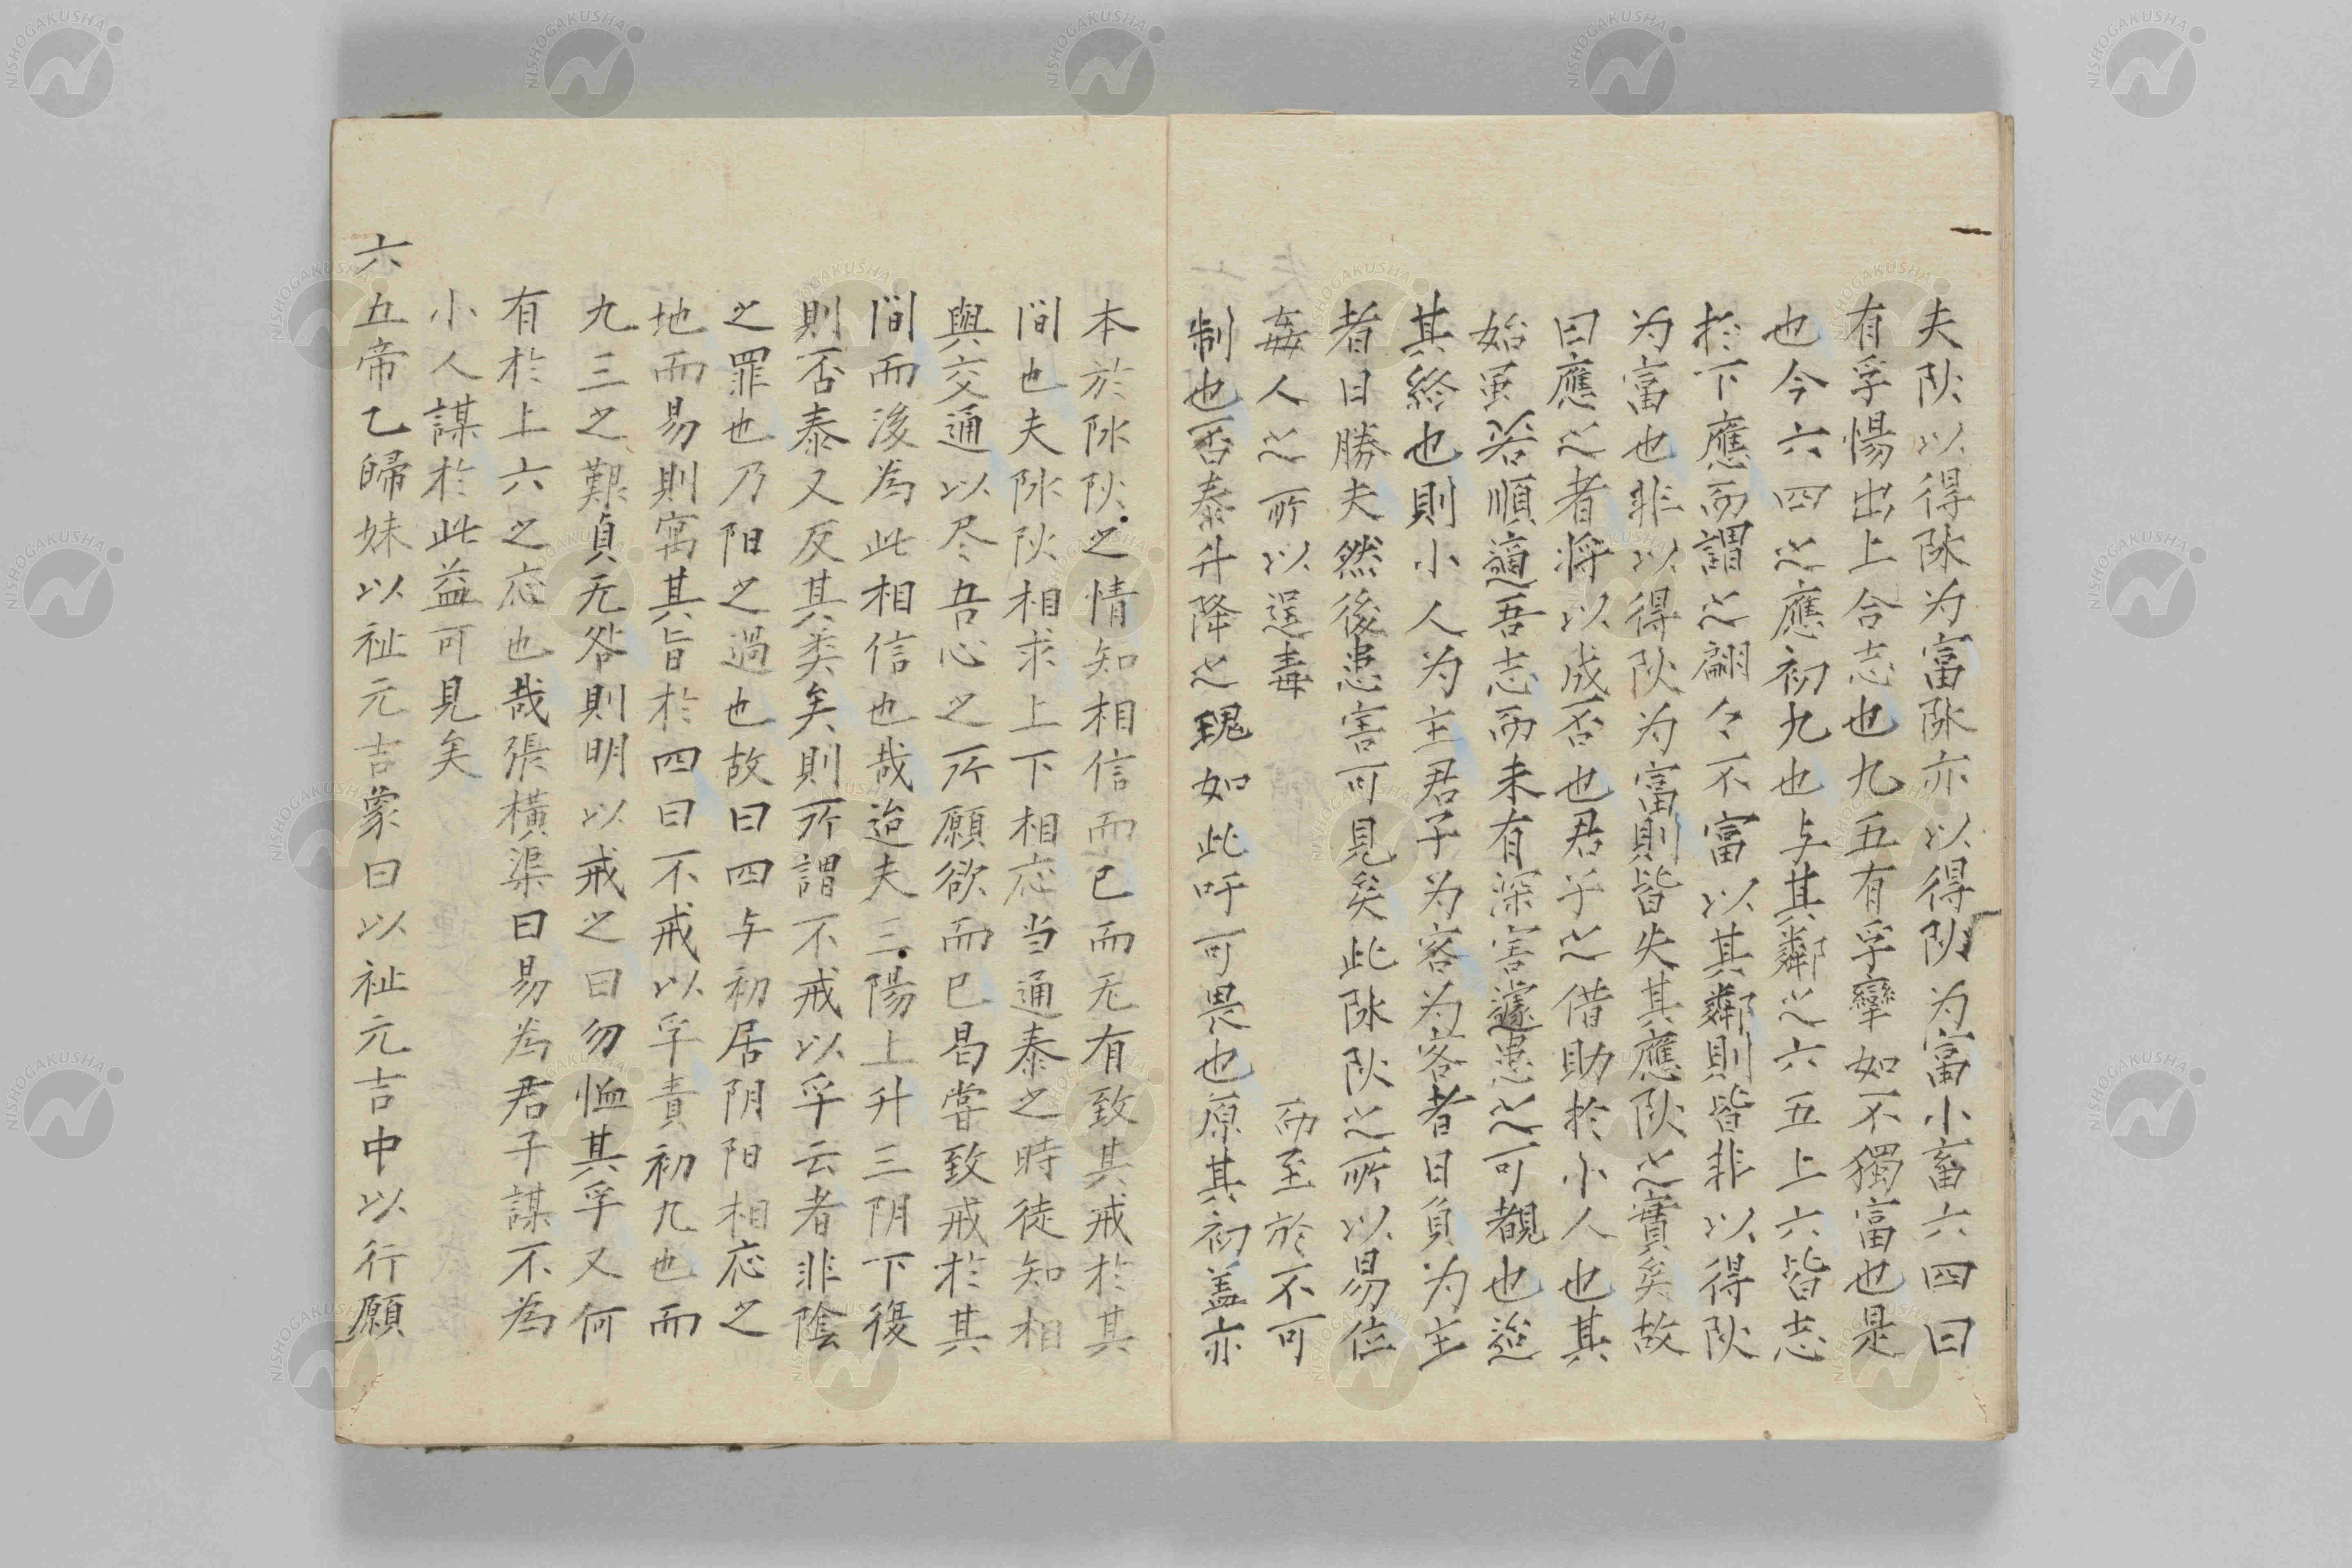 夫阦以得阥为富阥亦以得阦为富小畜六四曰
有孚惕出上合志也九五有孚攣如不獨富也是
也今六四之應初九也与其鄰之六五上六皆志
於下應而謂之翩々不富以其鄰則皆非以得阦
为富也非以得阦为富則皆失其應阦之實矣故
曰應之者将以成否也君子之借助於小人也其
始虽若順適吾志而未有深害遽患之可覩也逆
其終也則小人为主君子为客为客者日負为主
者日勝夫然後患害可見矣此阥阦之所以易位
姦人之所以逞毒　而至於不可
制也否泰升降之瑰如此吁可畏也原其初盖亦
本於阥阦之情知相信而已而无有致其戒於其
間也夫阥阦相求上下相応当通泰之時徒知相
與交通以尽吾心之所願欲而已曷嘗致戒於其
間而後為此相信也哉迨夫三陽上升三阴下復
則否泰又反其类矣則所謂不戒以孚云者非陰
之罪也乃阳之過也故曰四与初居阴阳相応之
地而易則寓其旨於四曰不戒以孚責初九也而
九三之艱貞无咎則明以戒之曰勿恤其孚又何
有於上六之応也哉張橫渠曰易為君子謀不為
小人謀於此益可見矣
六五帝乙歸妹以祉元吉象曰以祉元吉中以行願
NISHOGAKUSHA